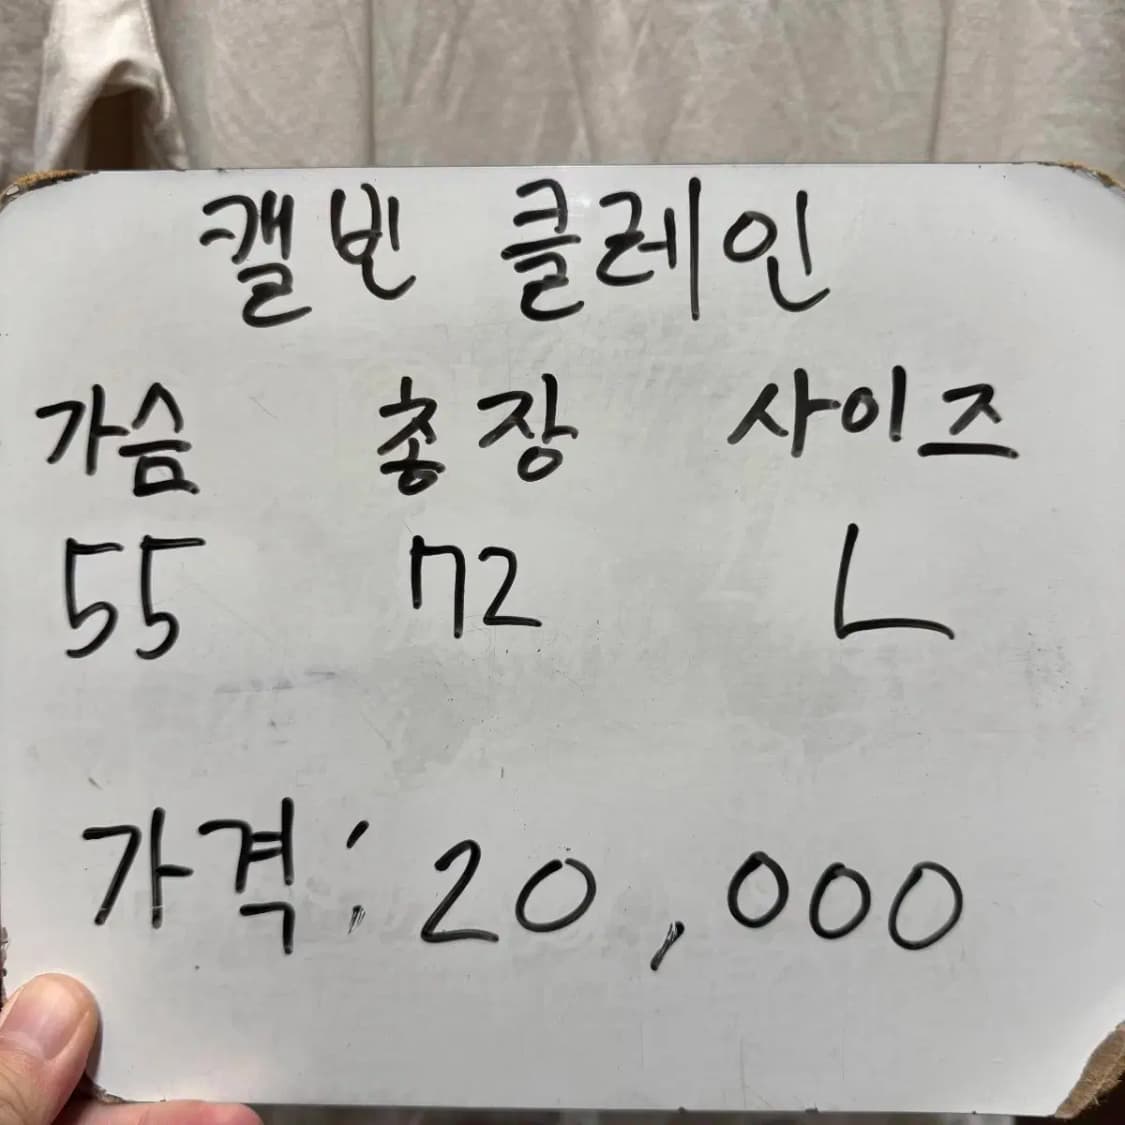 캘빈 클레인
가슴 총장 사이즈
55 72 L
가격: 20,000